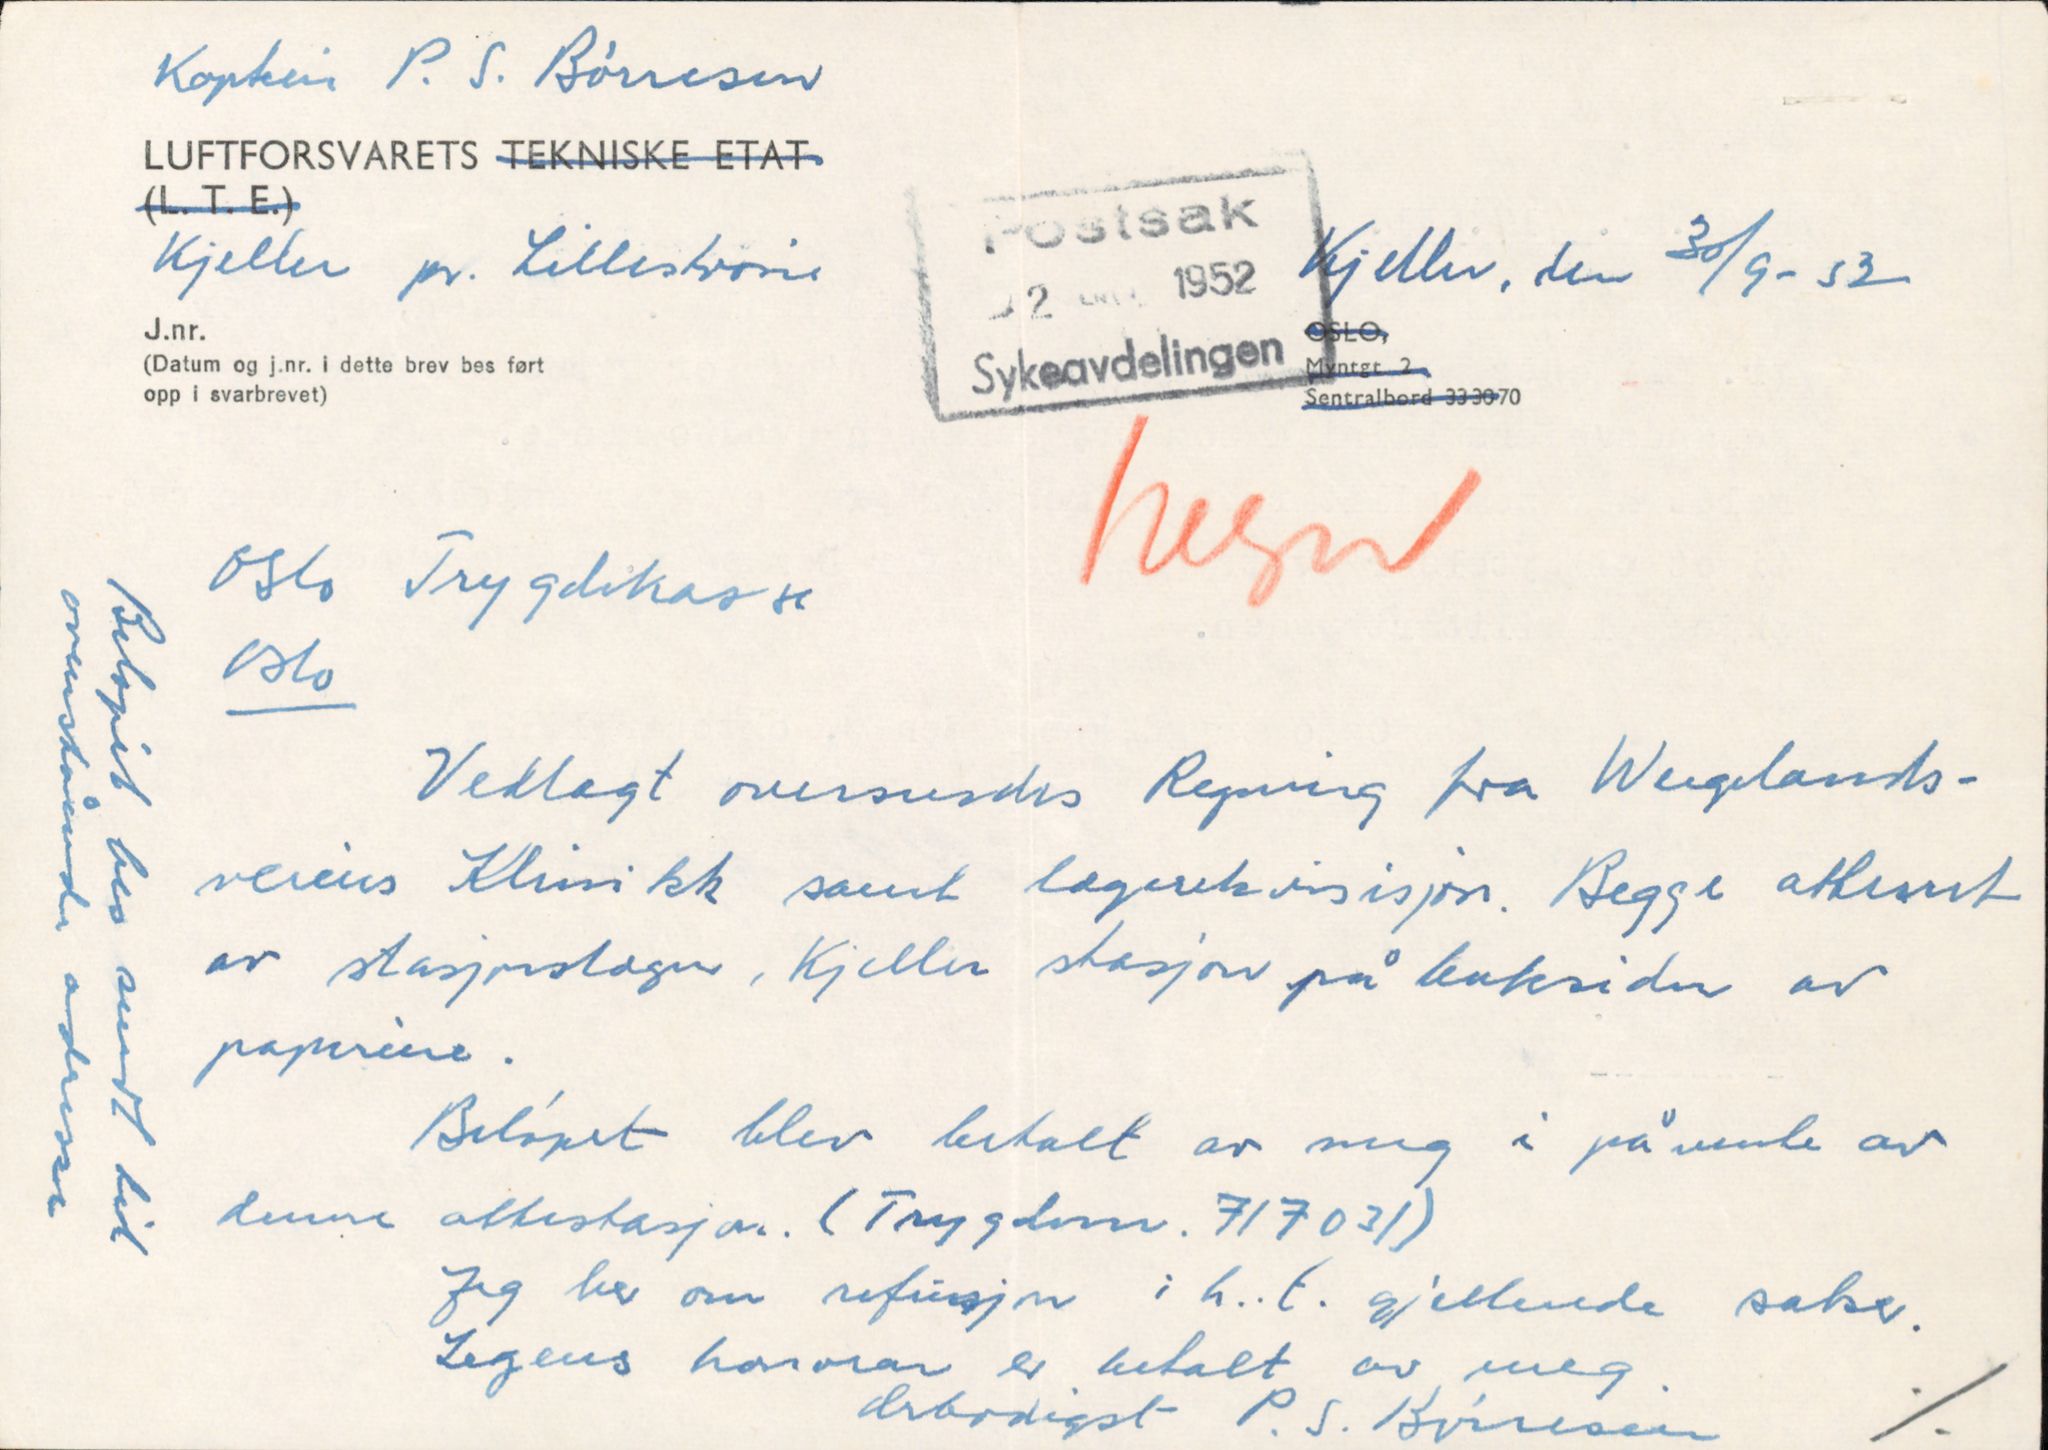 Kaptein P. S. Börresen
LUFTFORSVARETS TEKNISKE ETAT
(L. T. E.)
Kjeller pr. Lilleström
J.nr.
(Datum og j.nr. i dette brev bes ført
opp i svarbrevet)
Postsak
2 1952
Sykeavdelingen
Kjeller, den 30/9-52
OSLO,
Myntgt 2
Sentralbord 333070
Oslo Trygdekasse
Oslo
Vedlagt oversendes Regning fra Wergelands-
veiens Klinikk samt legerekvisisjon. Begge attestert
av stasjonslegen, Kjeller stasjon på baksiden av
papirene.
Belöpet blev betalt av meg i påvente av
denne attestasjon. (Trygdenr. 717031)
Jeg ber om refusjon i h.t. gjellende satser.
Legens honorar er betalt av meg.
Ærbödigst P. S. Börresen
Belöpet bes sendt til
ovenstående adresse